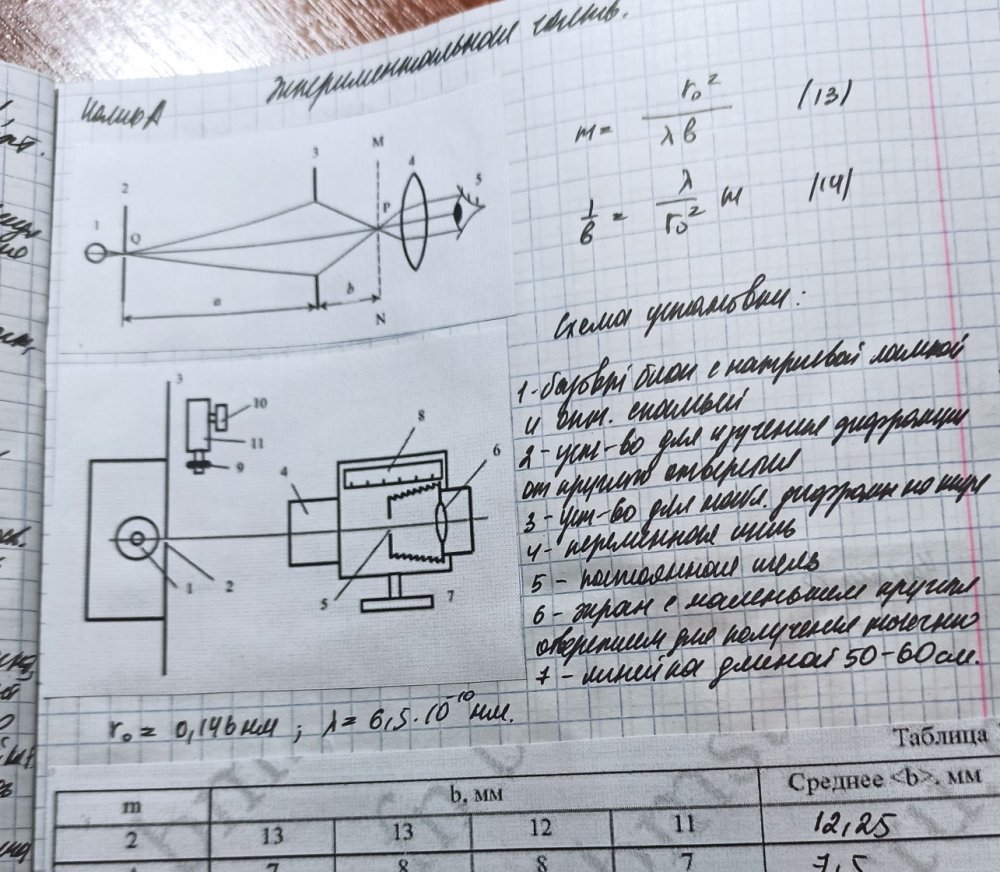 Экспериментальная часть.
Колиб А
m = r₀² / λ в /13/
1/в = λ/r₀² m /14/
1 2 3 M 4 5
Q P
a b
N
Схема установки:
1 - базовый блок с натриевой лампой
и опт. скамьей
2 - уст-во для изучения дифракции
от круглого отверстия
3 - уст-во для набл. дифракции на
4 - переменная щель
5 - постоянная щель
6 - экран с маленьким круглым
отверстием для получения точечно
7 - линейка длиной 50-60 см.
3
10
11
9
8
6
4
1 2 5 7
r₀ = 0,146 нм ; λ = 6,5·10⁻¹⁰ нм.
Таблица
m b, мм Среднее <b>, мм
2 13 13 12 11 12,25
7 8 8 7 7,5